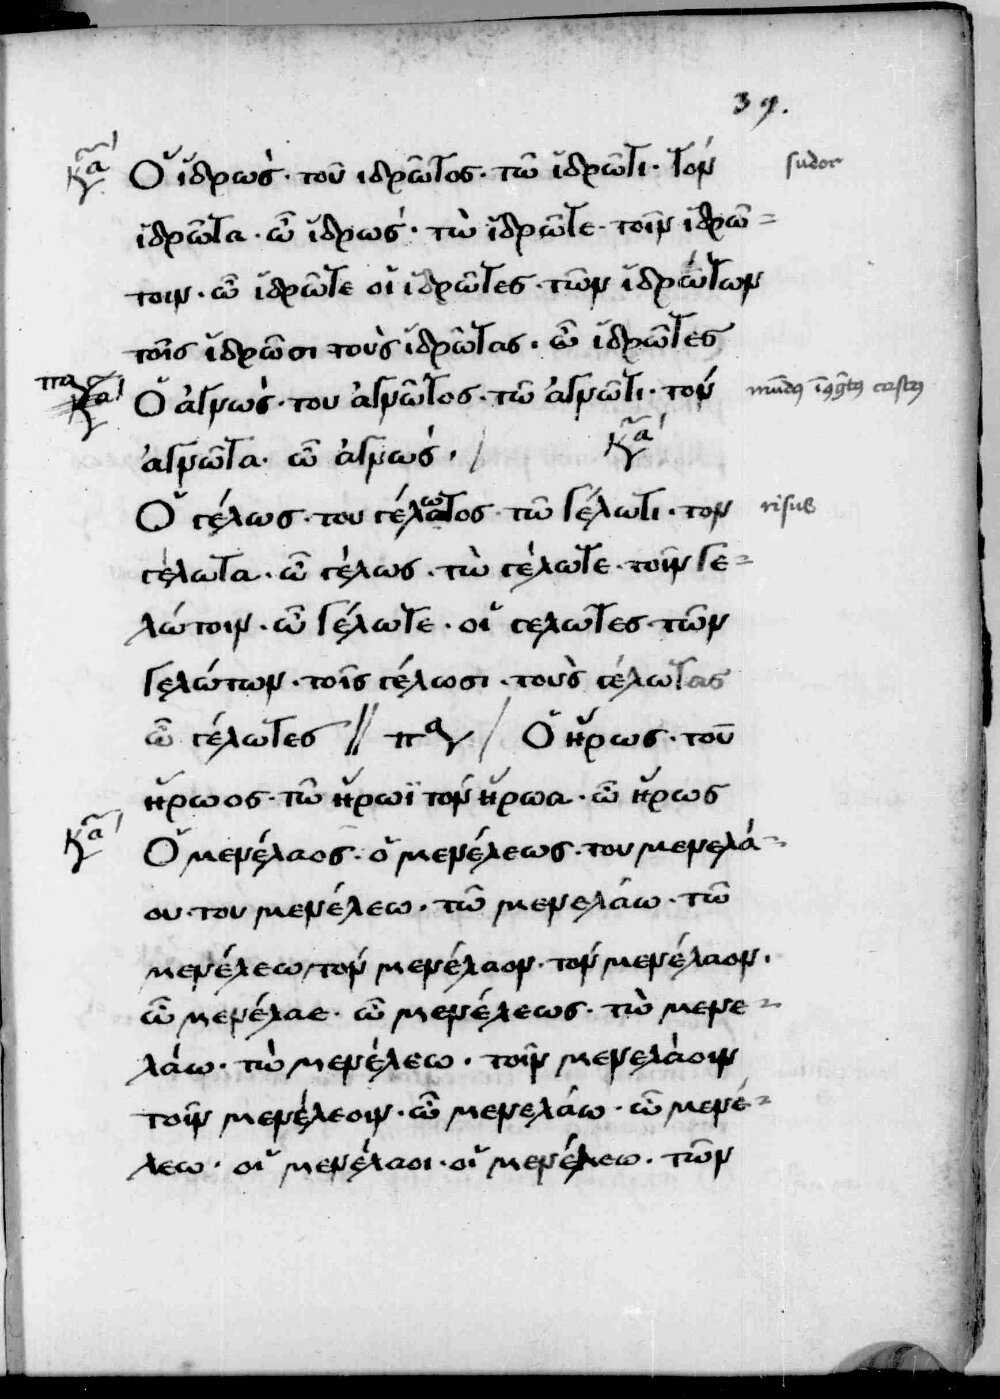 39.
κα Ὁ ἱδρὼς· τοῦ ἱδρῶτος· τῶ ἱδρῶτι· τὸν sudor
ἱδρῶτα· ὦ ἱδρώς· τὼ ἱδρῶτε· τοῖν ἱδρώ=
τοιν· ὦ ἱδρῶτε οἱ ἱδρῶτες· τῶν ἱδρώτων
τοῖς ἱδρῶσι τοὺς ἱδρῶτας· ὦ ἱδρῶτες
Ὁ ἁγνὼς· του ἁγνῶτος· τῶ ἁγνῶτι· τὸν
ἁγνῶτα· ὦ ἁγνώς· / κα
Ὁ γέλως· του γέλωτος· τῶ γέλωτι· τον risus
γέλωτα· ὦ γέλως· τὼ γέλωτε· τοῖν γε=
λώτοιν· ὦ γέλωτε· οἱ γελωτες· τῶν
γελώτων· τοῖς γέλωσι· τοὺς γέλωτας
ὦ γέλωτες // / Ὁ ἥρως· τοῦ
ἥρωος· τῶ ἥρωϊ τὸν ἥρωα· ὦ ἥρως
κα Ὁ μενέλαος· ὁ μενέλεως· του μενελά=
ου· του μενέλεω· τῶ μενελάω· τῶ
μενέλεω, τὸν μενέλαον· τὸν μενέλαον·
ὦ μενέλαε· ὦ μενέλεως· τὼ μενε=
λάω· τὼ μενέλεω· τοῖν μενελάοιν
τοῖν μενέλεοιν· ὦ μενελάω· ὦ μενέ=
λεω· οἱ μενέλαοι· οἱ μενέλεω· τῶν